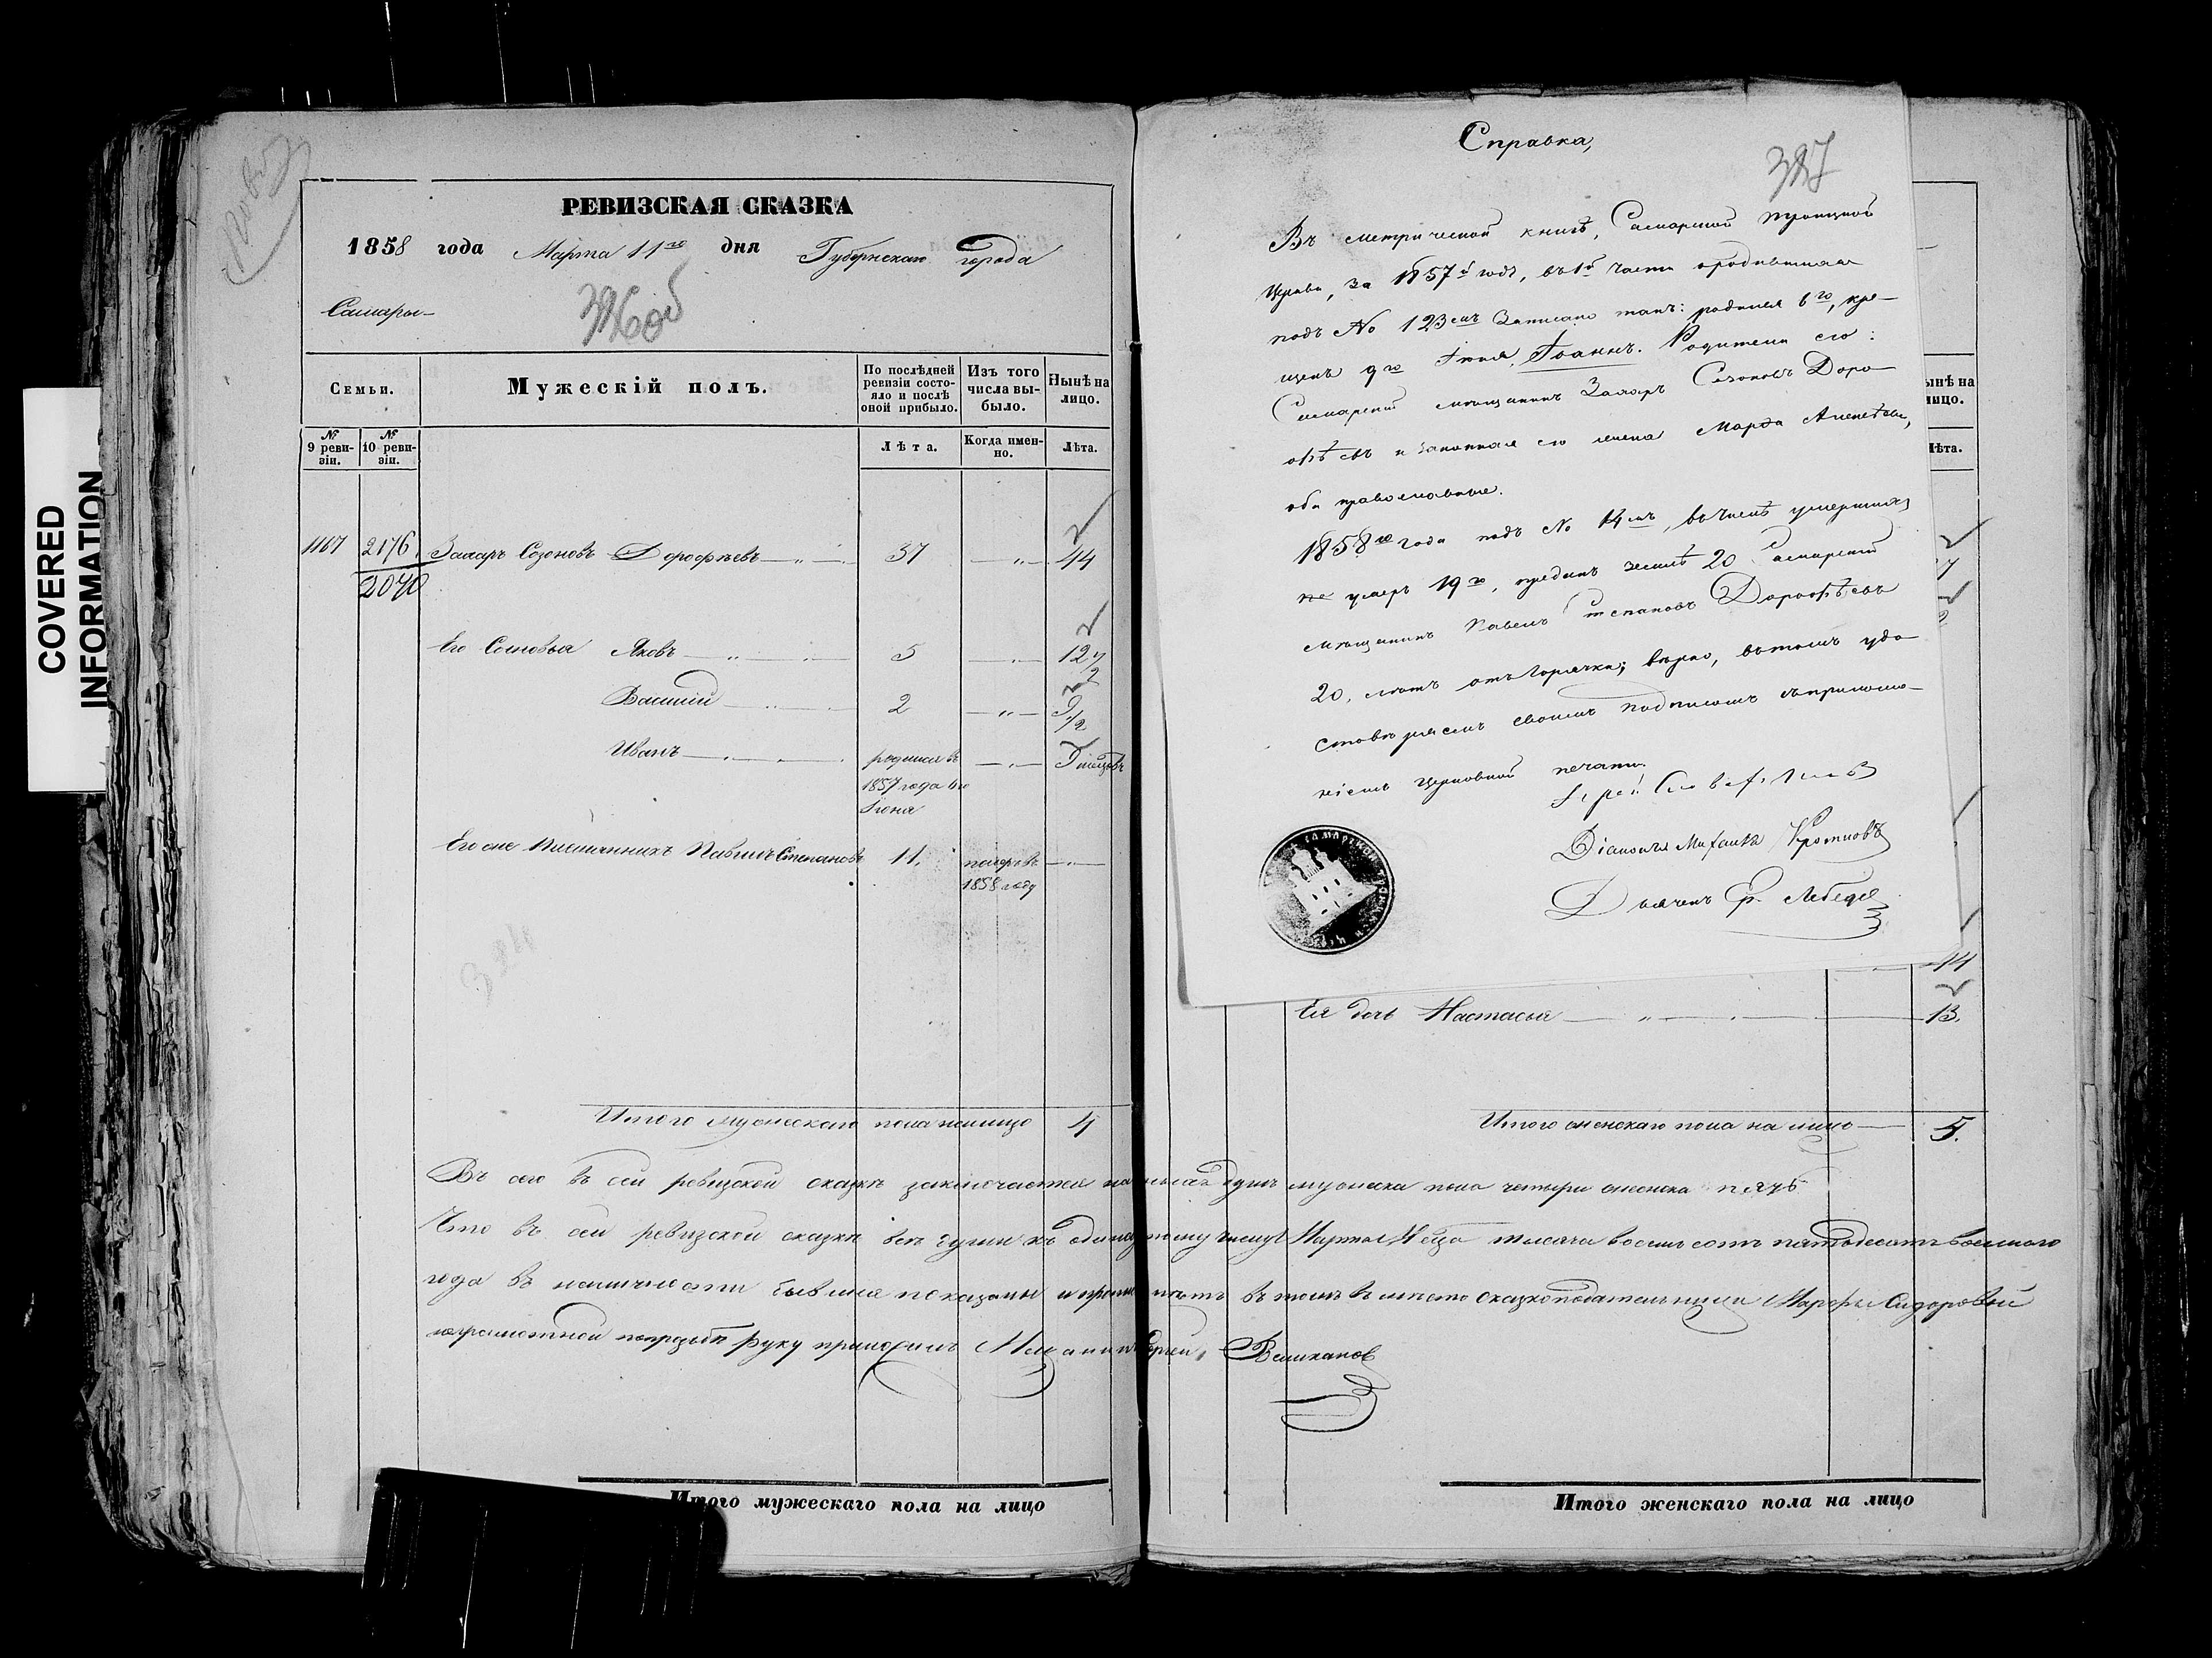 COVERED
INFORMATION
РЕВИЗСКАЯ СКАЗКА
1858 года Марта 11го дня Губернскаго города
Самары
Семьи.
Мужескій полъ.
По послѣдней ревизіи состояло и послѣ оной прибыло.
Изъ того числа выбыло.
Нынѣ на лицо.
№ 9 ревизіи.
№ 10 ревизіи.
Лѣта.
Когда именно.
Лѣта.
1167 2176 Захаръ Созоновъ Дорофѣевъ 37 44
2040
Его Сыновья Яковъ 5 12 1/2
Василій 2 9 1/2
Иванъ родился въ 9 мѣсцовъ
1857 года 6го
Іюня
Его же племянникъ Павелъ Степановъ 11. померъ въ
1858 году
Итого мужескаго пола налицо 4
Справка,
327
Въ метрической книгѣ, Самарской Троицкой
Церкви, за 1857й годъ, въ 1й части о родившихся
подъ № 123мъ Записано такъ: родился 6го, кре-
щенъ 9го Іюня, Іоаннъ. Родители его:
Самарскій мѣщанинъ Захаръ Созоновъ Доро-
ѳѣевъ и законная его жена Марѳа
оба православные.
1858го года подъ № 14мъ, въ числѣ умершихъ
умеръ 19го, преданъ землѣ 20 Самарскій
мѣщанинъ Павелъ Степановъ Дороѳѣевъ
20, лѣтъ отъ горячки; вѣрно, въ томъ удо-
стовѣряемъ своимъ подписомъ съ приложе-
ніемъ церковной печати.
Діаконъ Михаилъ Кротковъ
Дьячекъ Ф. Лебедев
нынѣ на лицо.
Лѣта.
44
Ея дочь Настасья 13.
Итого женскаго пола на лицо 5.
Въ сего въ сей ревизской сказкѣ заключается налицо душъ мужеска пола четыре женска пять
Что въ сей ревизской сказкѣ всѣ души къ одинадцатому числу Марта Мѣсца тысяча восемь сотъ пятьдесятъ восьмого
года въ наличности бывшія показаны и прописныхъ нѣтъ въ томъ вмѣсто сказкоподательницы Марѳы Сидоровой
неграмотной по просьбѣ руку приложилъ Мещанинъ Великанов
Итого мужескаго пола на лицо
Итого женскаго пола на лицо